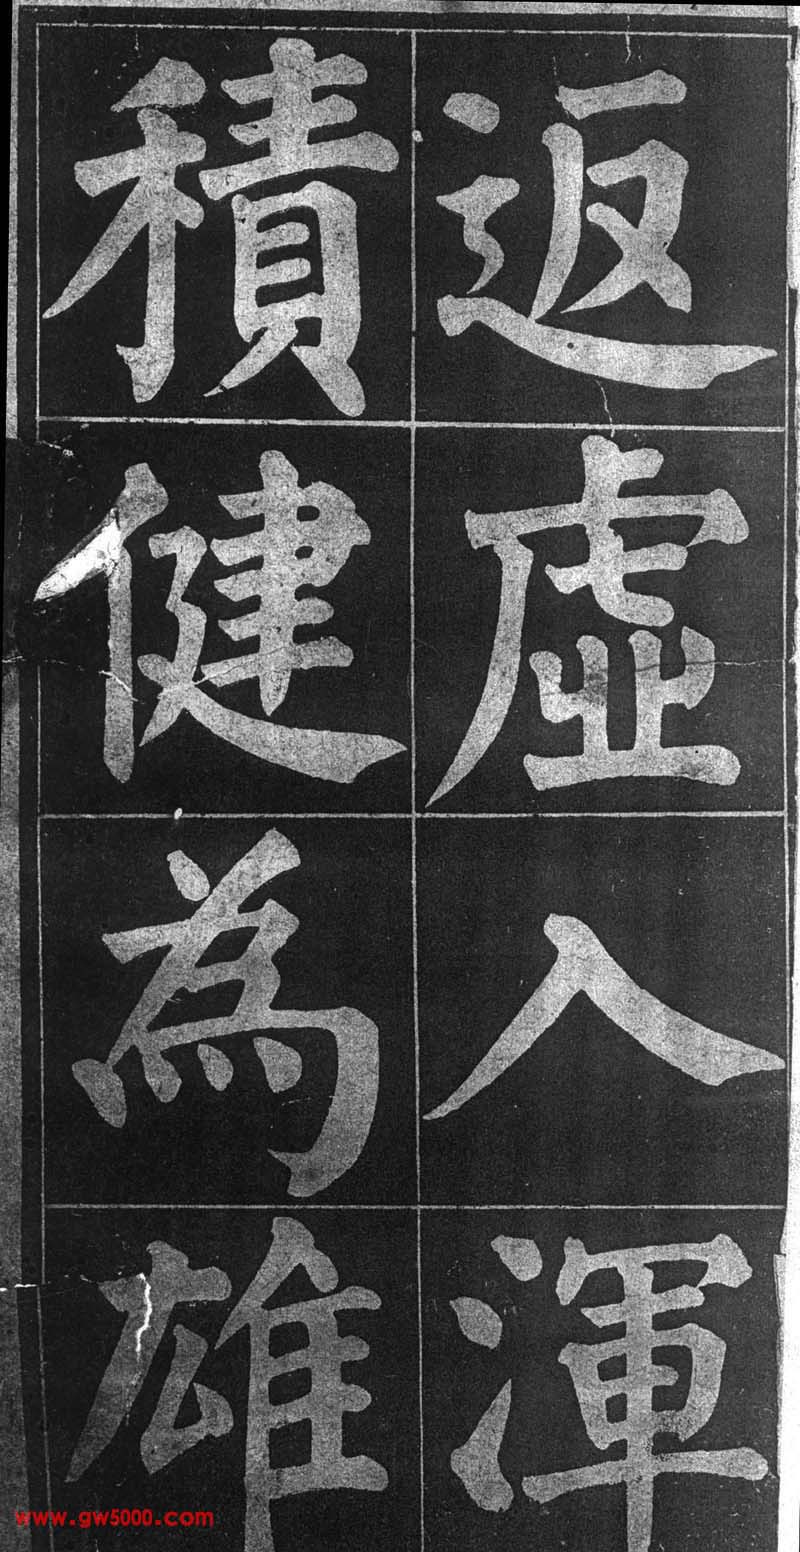 返虛入渾
積健為雄
www.gw5000.com